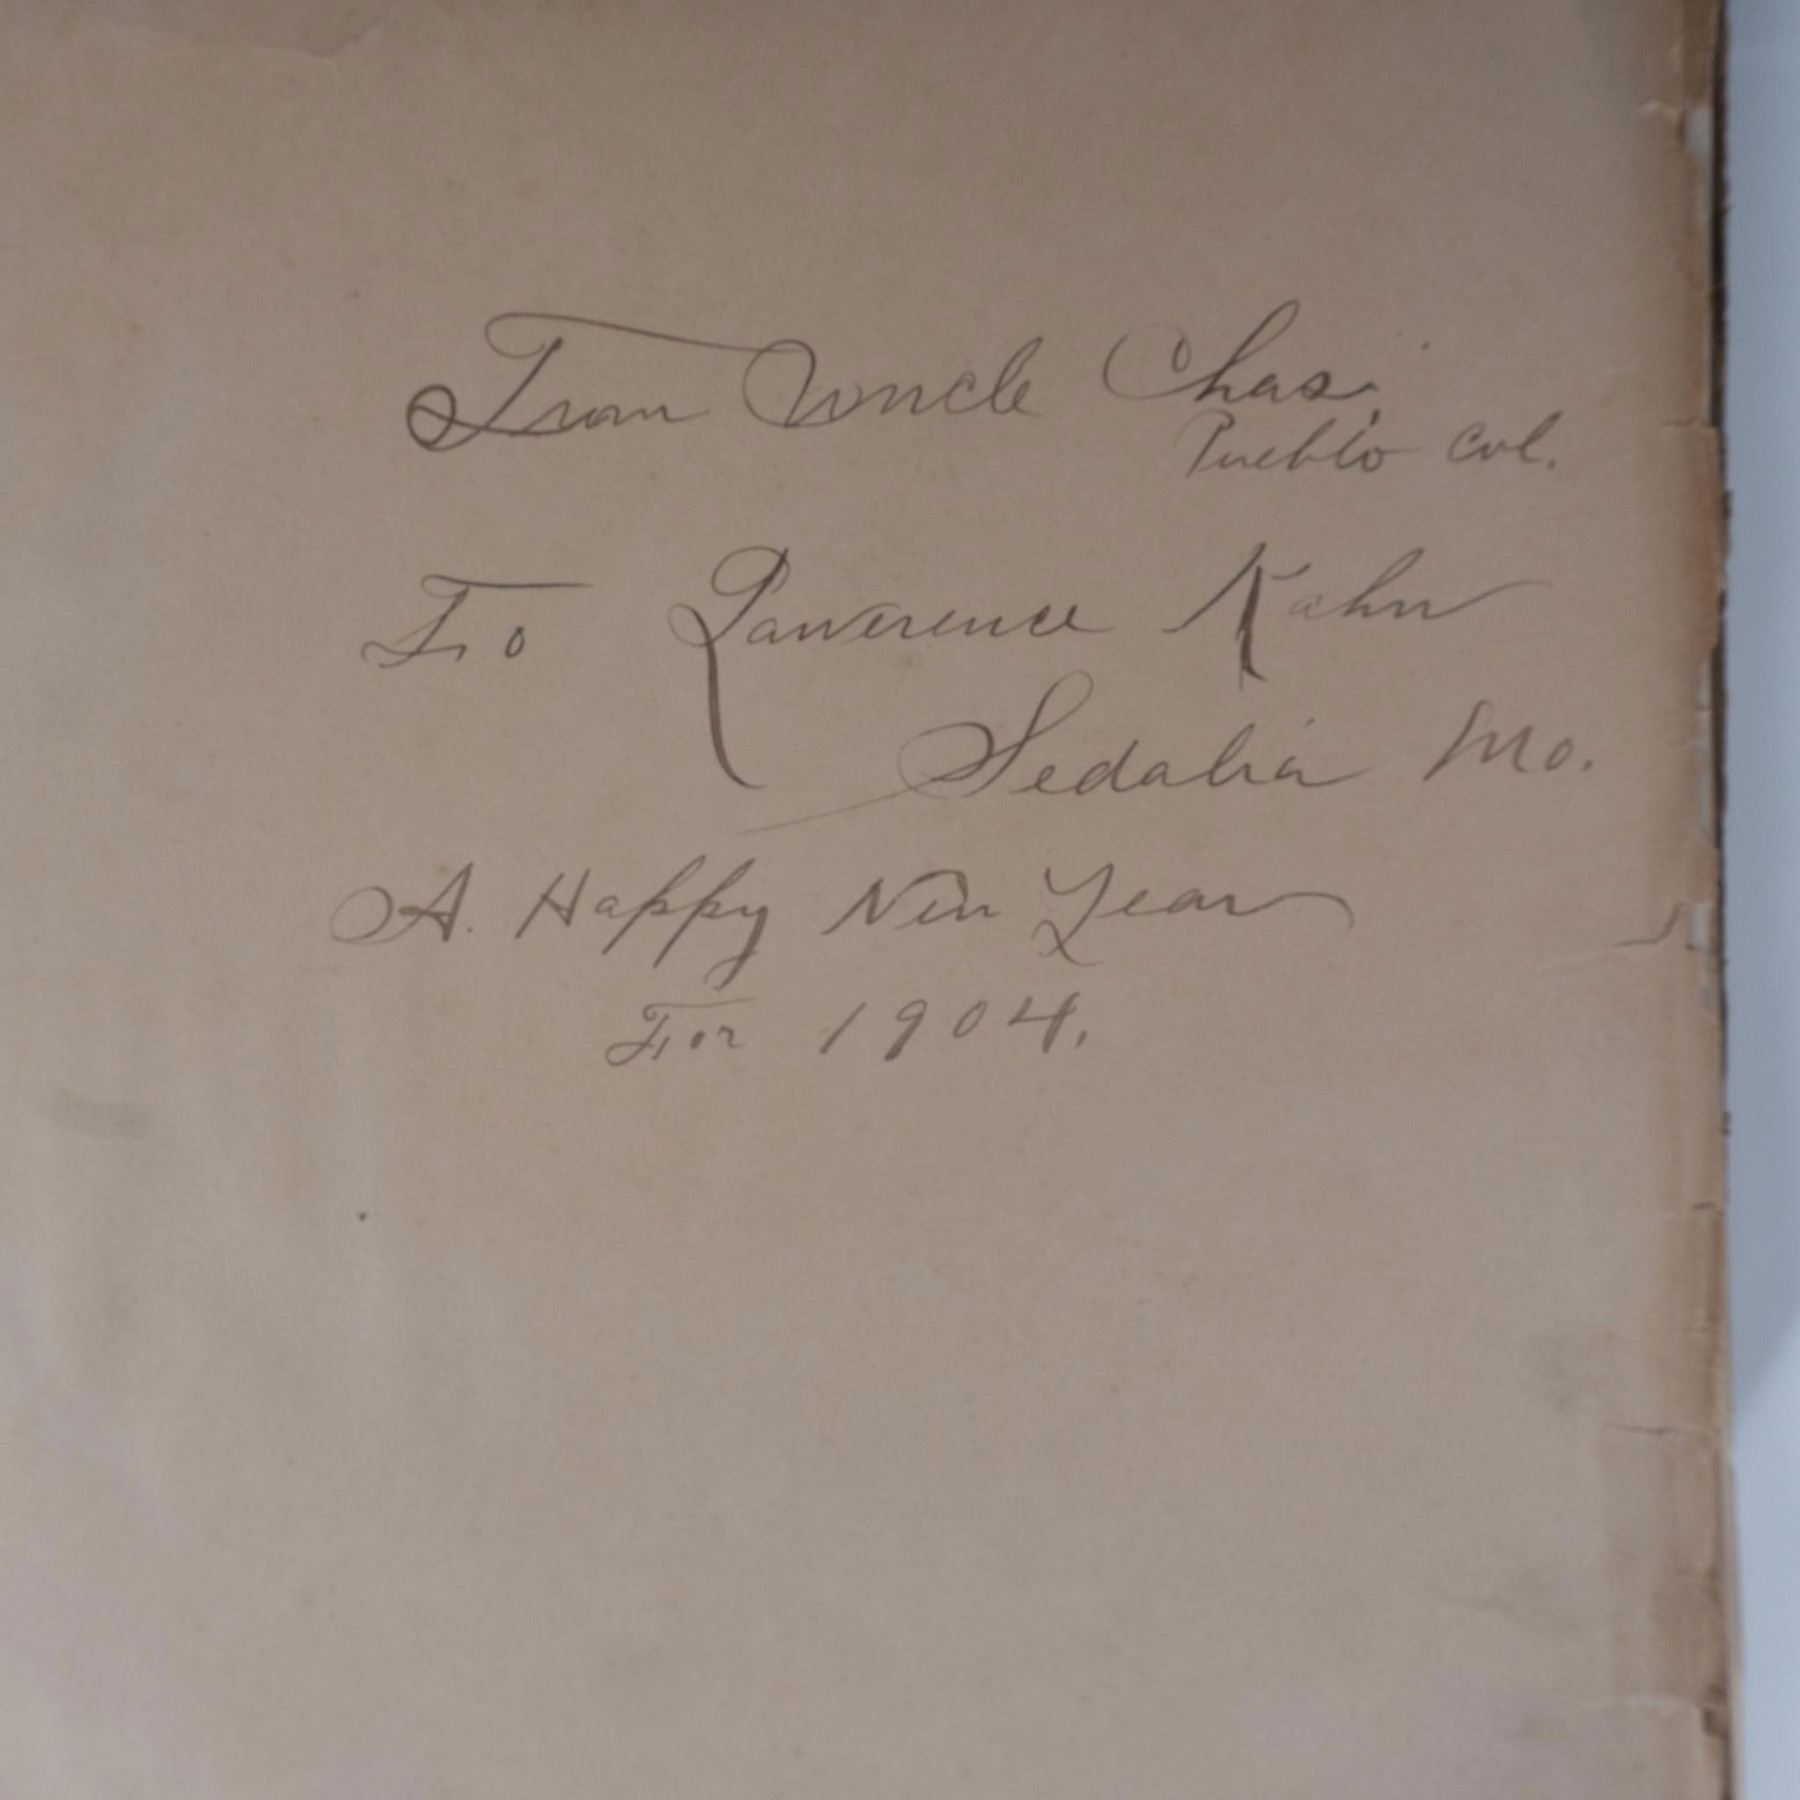 From Uncle Chas.
Pueblo Col.
To Lawerence Kahn
Sedalia Mo.
A. Happy New Year
For 1904.